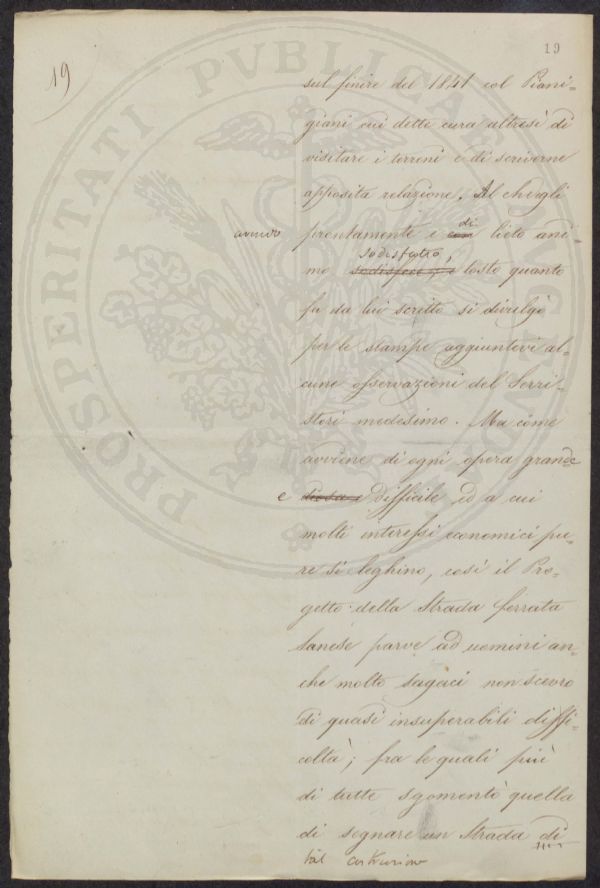 19
19
sul finire del 1841 col Piani=
giani cui dette cura altresì di
visitare i terreni e di scriverne
apposita relazione. Al che egli
avendo prontamente e di lieto ani
mo sodisfatto, tosto quanto
fu da lui scritto si divulgò
per le stampe aggiuntevi al=
cune osservazioni del Serri=
stori medesimo. Ma come
avviene di ogni opera grande
e difficile, ed a cui
molti interessi economici pu=
re si leghino, così il Pro=
getto della Strada ferrata
Sanese parve ad uomini an=
che molto sagaci non scevro
di quasi insuperabili diffi=
coltà; fra le quali più
di tutte sgomentò quella
di segnare un Strada di
tal costruzione
PROSPERITATI PVBLICAE